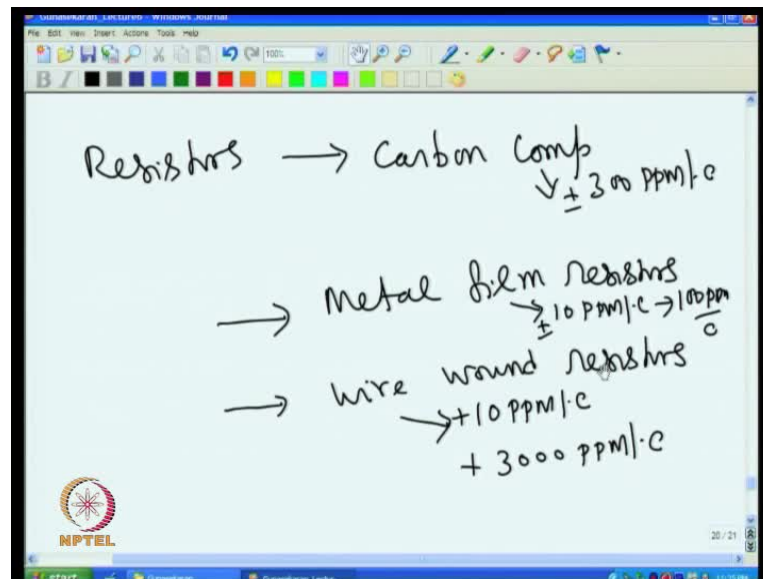 Gunasekaran_Lecture6 - Windows Journal
File Edit View Insert Actions Tools Help
100%
B I
Resistrs → Carbon Comp
± 300 PPM/°C
→ Metal film resistrs
± 10 PPM/°C → 100 ppm/C
→ Wire wound resistrs
+10 PPM/°C
+ 3000 PPM/°C
NPTEL
20 / 21
start